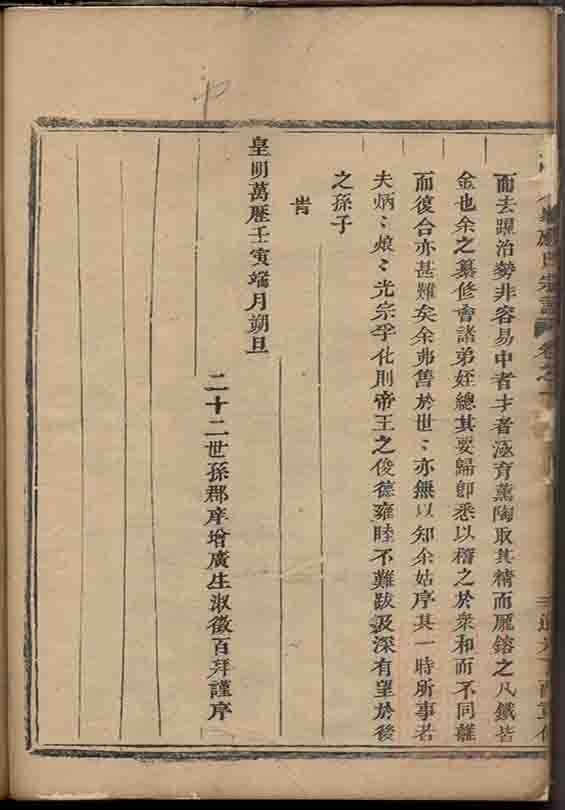 氏宗譜 卷之
而去躍冶勢非容易中者才者涵育薰陶取其精而厖鎔之凡鐵皆
金也余之纂修會諸弟姪總其要歸卽悉以稽之於衆和而不同離
而復合亦甚難矣余弗售於世〻亦無以知余姑序其一時所事若
夫炳〻烺〻光宗孚化則帝王之俊德雍睦不難跋及深有望於後
之孫子
旹
皇明萬歷壬寅端月朔旦
二十二世孫郡庠增廣生淑徵百拜謹序